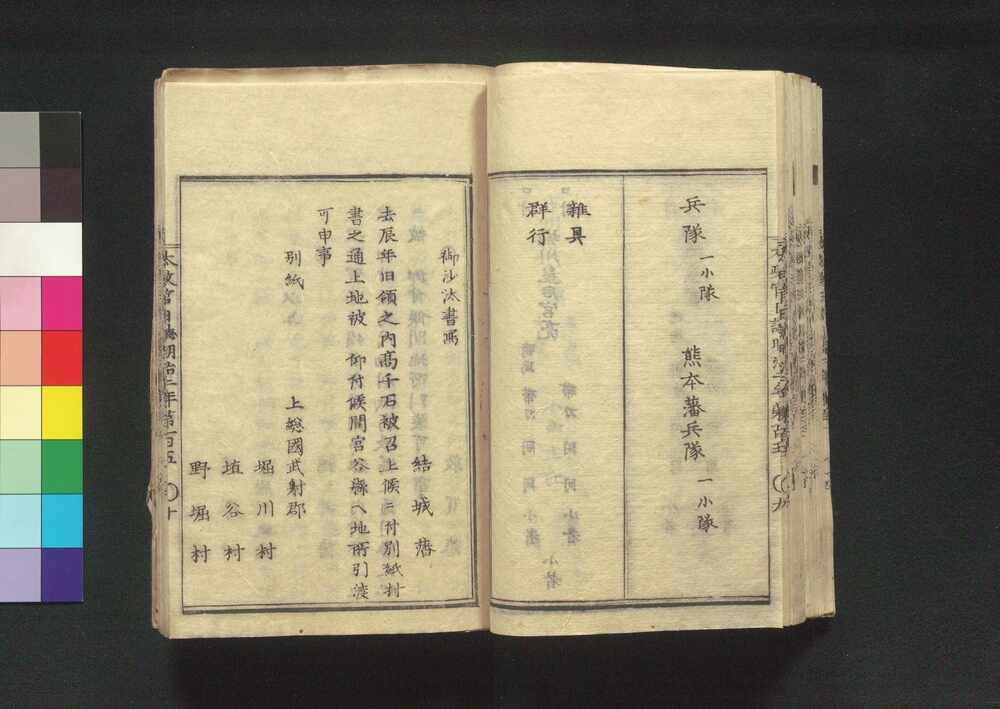 兵隊 一小隊 熊本藩兵隊 一小隊
雑具
群行
御沙汰書写
結城藩
去辰年旧領之内高千石被召上候ニ付別紙村
書之通上地被 仰付候間宮谷縣ヘ地所引渡
可申事
別紙
上総國武射郡
堀川村
埴谷村
野堀村
太政官日誌明治二年第百五
十